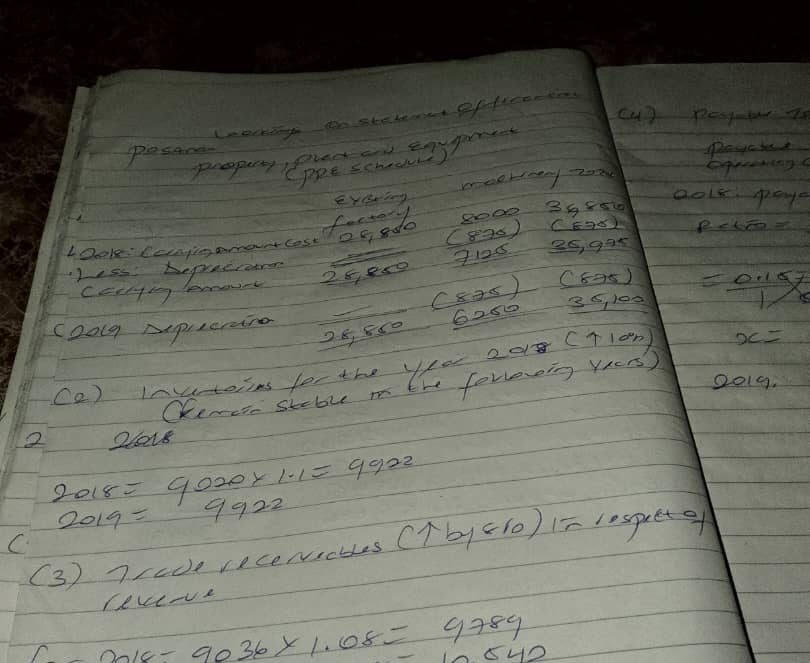 Workings on Statement of financial
Position
property, plant and Equipment
(PPE Schedule)
Existing machinery Total
factory
2018: Carrying amount cost 28,850 8000 36,850
Less: Depreciation (875) (875)
Carrying amount 28,850 7125 35,975
(2019 Depreciation (875) (875)
28,850 6250 35,100
(2) Inventories for the year 2018 (↑10%)
(Remain Stable in the following years)
2018
2018= 9020 x 1.1 = 9922
2019= 9922
(3) Trade receivables (↑ by 8%) in respect of
revenue
2018= 9036 x 1.08 = 9789
= 10,542
(4) Payable
Payable
Operating
2018: Paya
Ratio =
= 0.157
1
x=
2019.